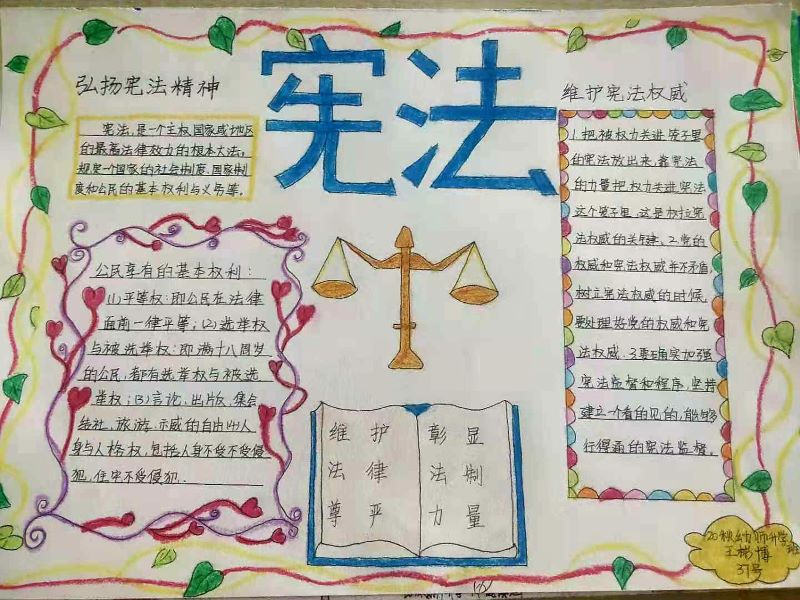 宪法
弘扬宪法精神
宪法,是一个主权国家或地区
的最高法律效力的根本大法,
规定一个国家的社会制度、国家制
度和公民的基本权利与义务等。
公民享有的基本权利:
(1)平等权:即公民在法律
面前一律平等;(2)选举权
与被选举权:即满十八周岁
的公民,都有选举权与被选
举权;(3)言论、出版、集会
结社、旅游、示威的自由(4)人
身与人格权,包括人身不受不受侵
犯,住宅不受侵犯.
维护
法律
尊严
彰显
法制
力量
维护宪法权威
1.把被权力关进笼子里
的宪法放出来,靠宪法
的力量把权力关进宪法
这个笼子里,这是权拉宪
法权威的关键、2.党的
权威和宪法权威并不矛盾,
树立宪法权威的时候,
要处理好党的权威和宪
法权威、3.要确实加强
宪法监督和程序,坚持
建立一个看的见的,能够
行得通的宪法监督。
20秋幼师升学
班
王彬博
37号